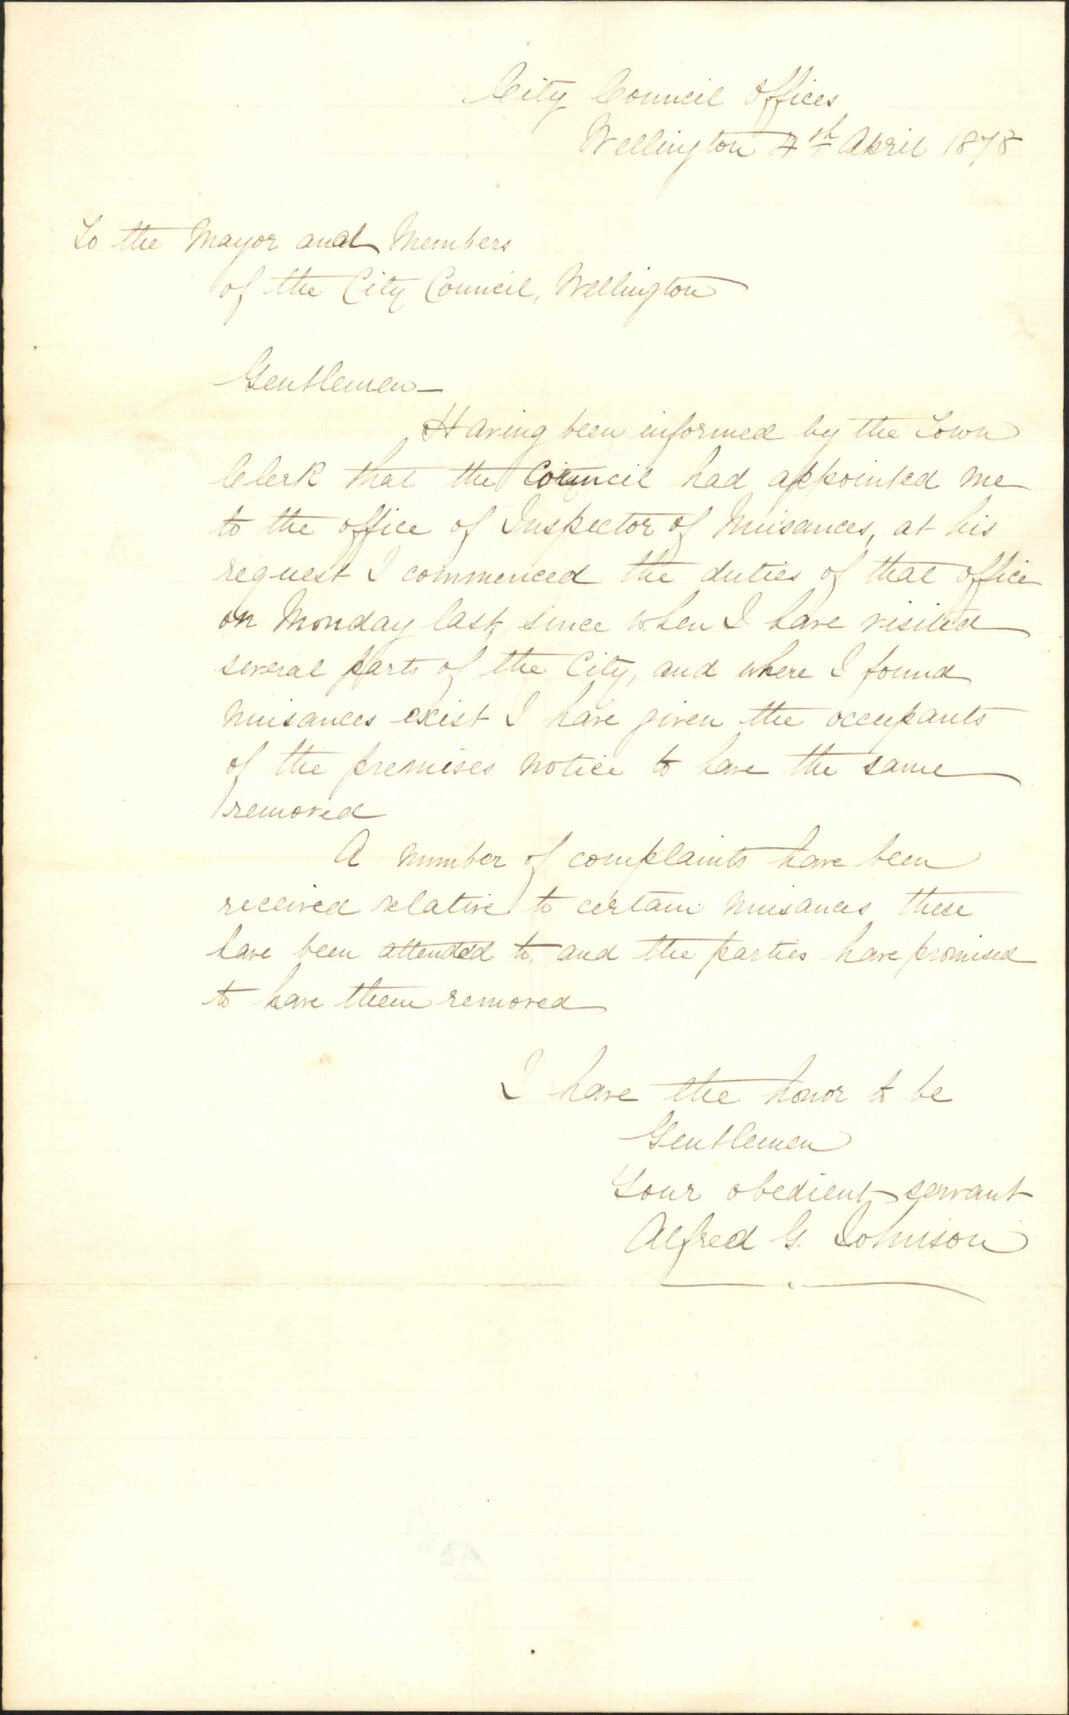 City Council Offices
Wellington 4th April 1878
To the Mayor and Members
of the City Council, Wellington
Gentlemen—
Having been informed by the Town
Clerk that the Council had appointed me
to the office of Inspector of Nuisances, at his
request I commenced the duties of that office
on Monday last, since when I have visited
several parts of the City, and where I found
nuisances exist I have given the occupants
of the premises notice to have the same
removed
A number of complaints have been
received relative to certain nuisances these
have been attended to, and the parties have promised
to have them removed
I have the honor to be
Gentlemen
Your obedient servant
Alfred G. Johnson